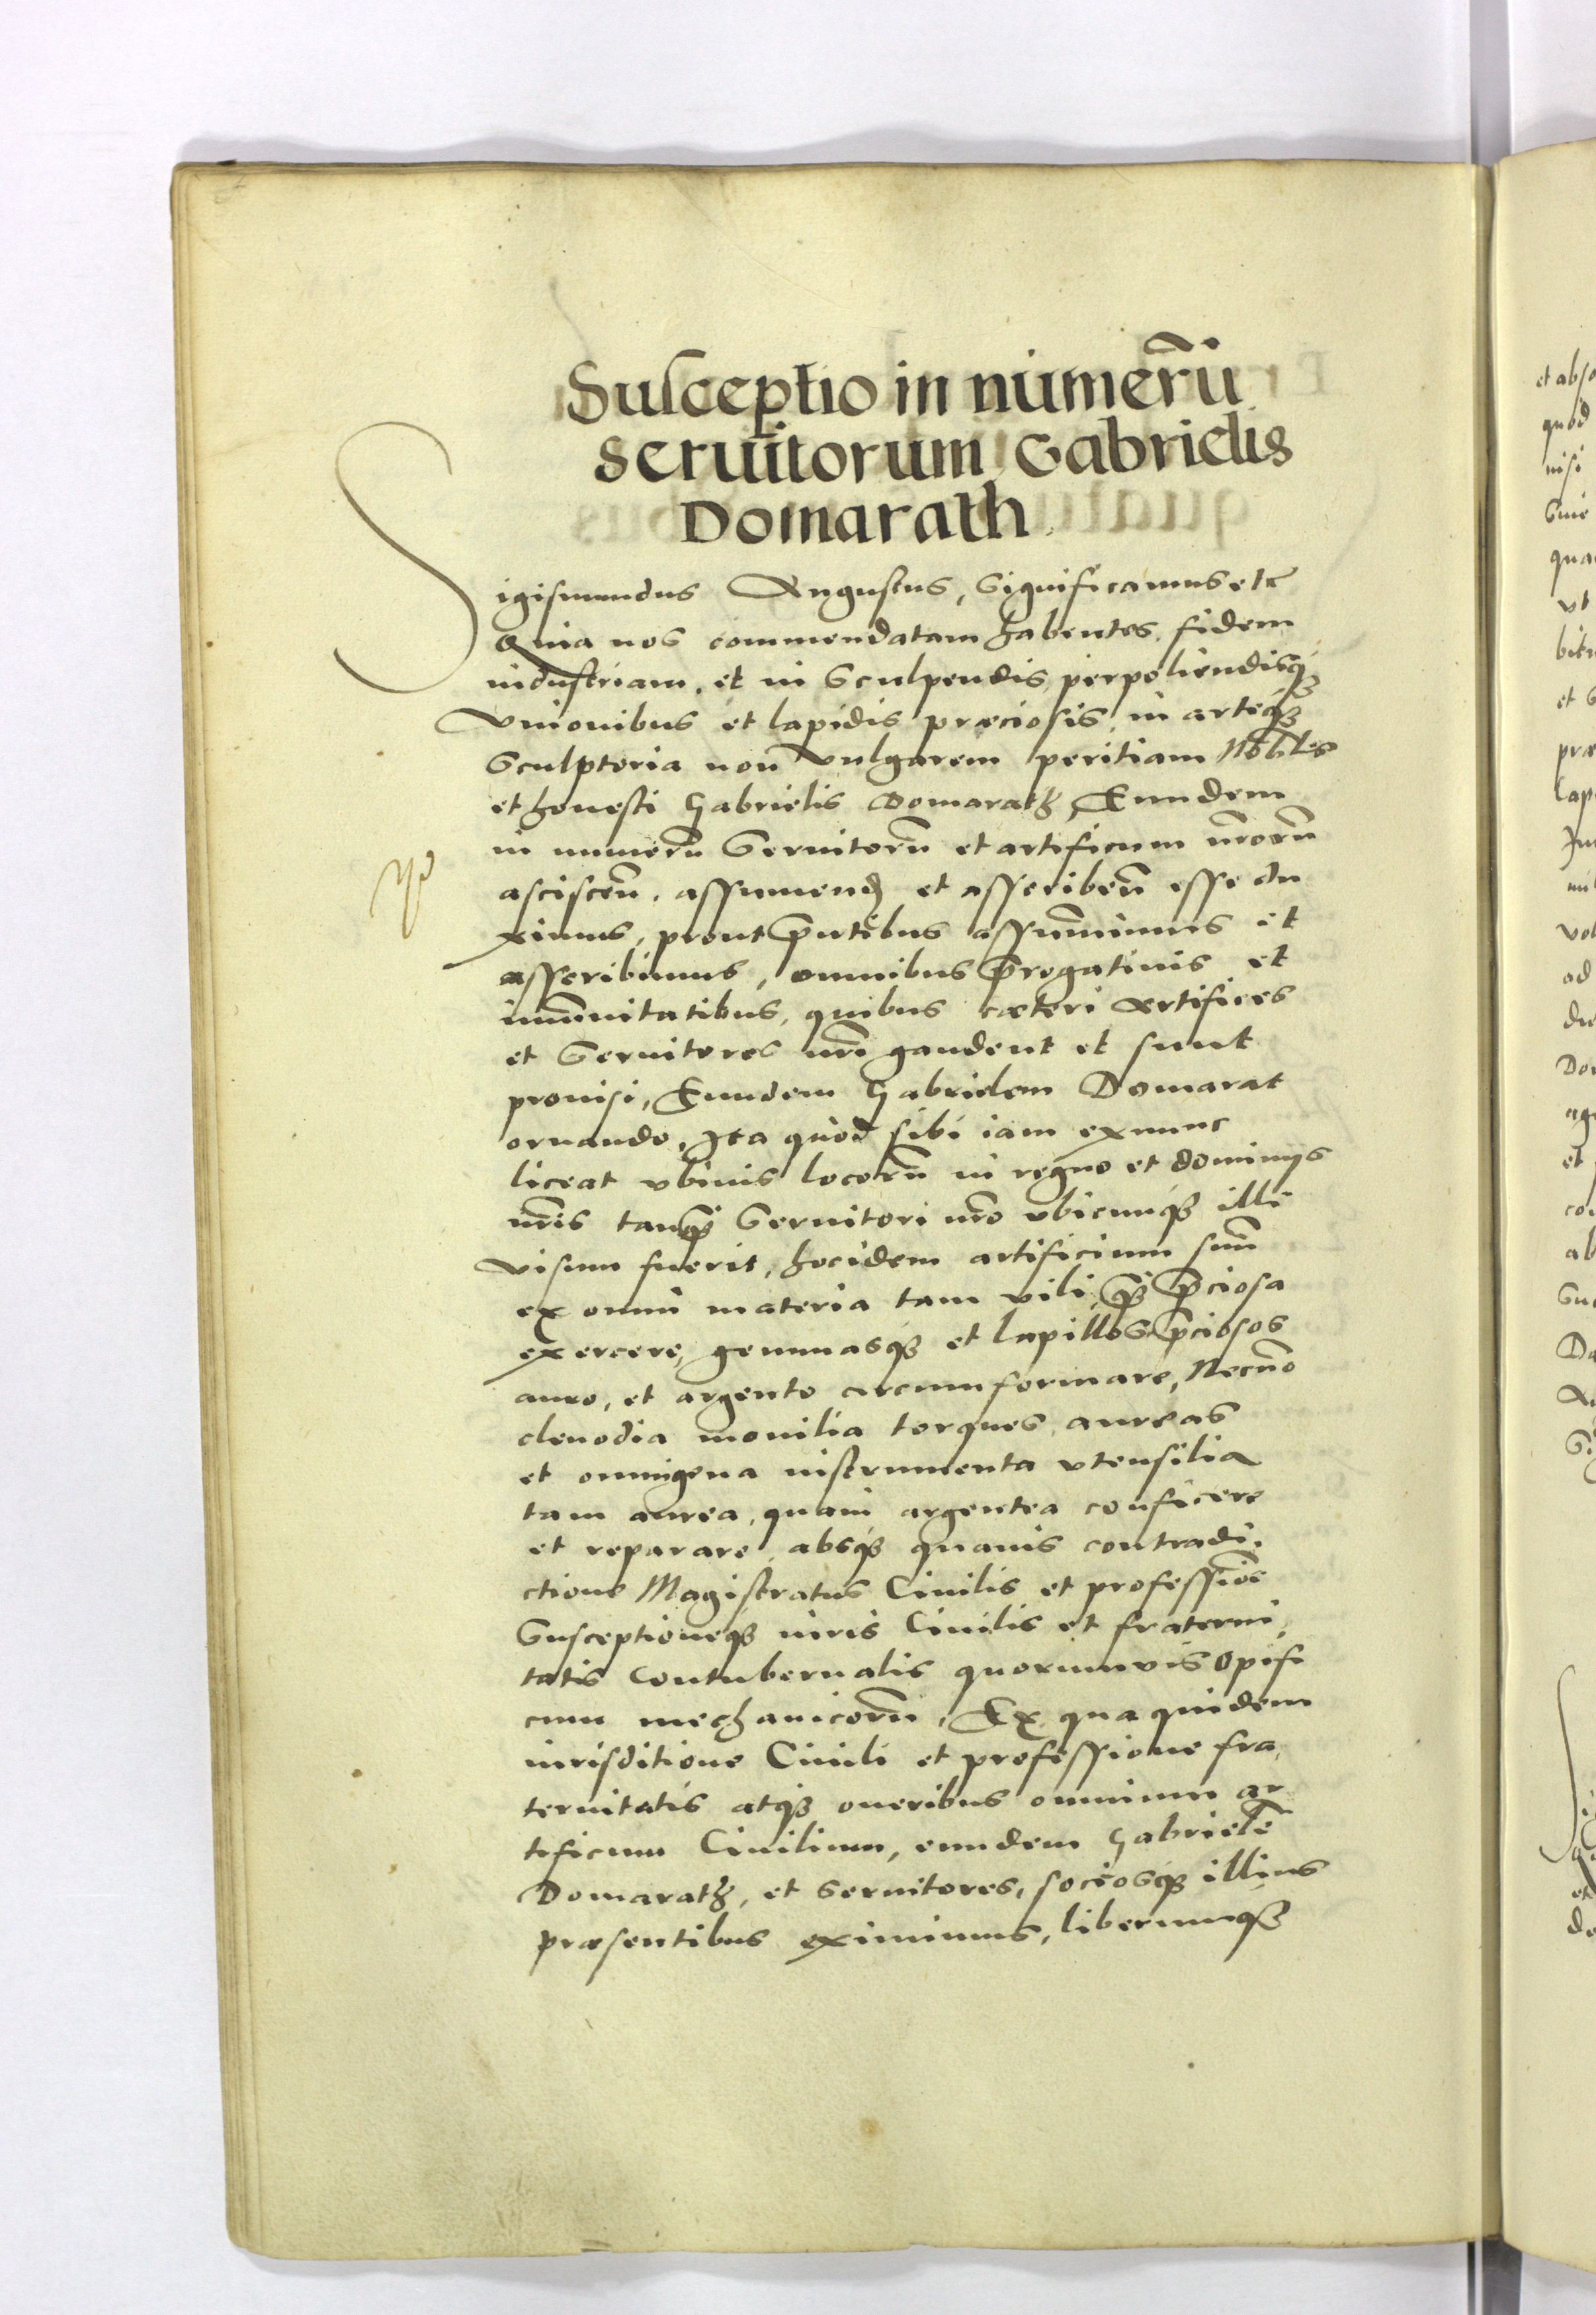 Susceptio in numerū
seruitorum Gabrielis
Domarath.
Sigismundus Augustus, Significamus etc̃
Quia nos commendatam habentes, fidem
industriam, et in Sculpendis perpoliendisq3
Vnionibus et lapidis præciosis, in arteq3
Sculptoria non vulgarem peritiam Nobiles
et honesti Gabrielis Domarath, Eundem
in numerū Seruitorū et artificum nrorū
asciscen̄, assumend et asscriben̄ esse du
ximus, prout p̄ntibus assum̄imus et
asscribimus, omnibus p̄rogatiuis et
im̄unitatibus, quibus cæteri Artifices
et Seruitores nr̄i gaudent et sunt
prouisi, Eundem Gabrielem Domarat
ornando, Ita quod sibi iam exnunc
liceat vbiuis locorū in regno et dominijs
nr̄is tanq̄ Seruitori nr̄o vbicunq3 illi
visum fuerit, hocidem artificium suū
ex omni materia tam vili, q̄ p̄ciosa
exercere, gemmasq3 et lapillos p̄ciosos
auro, et argento circumformare, Necnō
clenodia monilia torques, aureas
et omnigena instrumenta vtensilia
tam aurea, quam argentea conficere
et reparare, absq3 quauis contradi,
ctione Magistratus Ciuilis et professiōe
Susceptioneq3 iuris Ciuilis et fraterni,
tatis Contubernalis quorumuis opifi
cum mechanicorū, Ex qua quidem
iurisditione Ciuili et professione fra,
ternitatis atq3 oneribus omnium ar
tificum Ciuilium, eundem Gabrielē
Domarath, et seruitores, sociosq3 illius
præsentibus eximimus, liberumq3